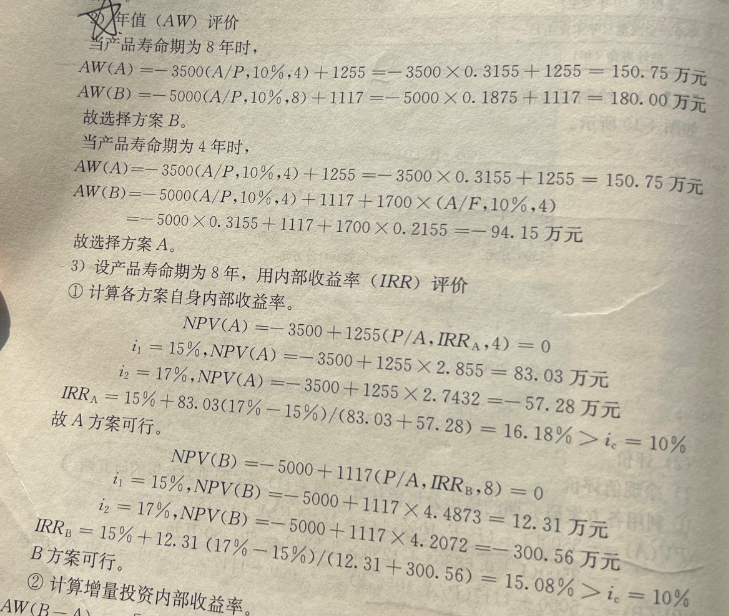 2) 年值（AW）评价
当产品寿命期为 8 年时，
AW(A) =－3500(A/P,10%,4)＋1255 =－3500×0.3155＋1255 = 150.75 万元
AW(B) =－5000(A/P,10%,8)＋1117 =－5000×0.1875＋1117 = 180.00 万元
故选择方案 B。
当产品寿命期为 4 年时，
AW(A)=－3500(A/P,10%,4)＋1255 =－3500×0.3155＋1255 = 150.75 万元
AW(B)=－5000(A/P,10%,4)＋1117＋1700×(A/F,10%,4)
=－5000×0.3155＋1117＋1700×0.2155 =－94.15 万元
故选择方案 A。
3) 设产品寿命期为 8 年，用内部收益率（IRR）评价
① 计算各方案自身内部收益率。
NPV(A) =－3500＋1255(P/A,IRR_A,4) = 0
i₁ = 15%,NPV(A) =－3500＋1255×2.855 = 83.03 万元
i₂ = 17%,NPV(A) =－3500＋1255×2.7432 =－57.28 万元
IRR_A = 15%＋83.03(17%－15%)/(83.03＋57.28) = 16.18%＞i_c = 10%
故 A 方案可行。
NPV(B) =－5000＋1117(P/A,IRR_B,8) = 0
i₁ = 15%,NPV(B) =－5000＋1117×4.4873 = 12.31 万元
i₂ = 17%,NPV(B) =－5000＋1117×4.2072 =－300.56 万元
IRR_B = 15%＋12.31 (17%－15%)/(12.31＋300.56) = 15.08%＞i_c = 10%
B 方案可行。
② 计算增量投资内部收益率。
AW(B－A)